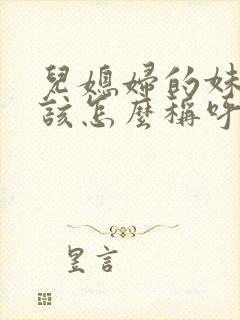 兒媳婦的妹
該怎麼稱呼
昱言